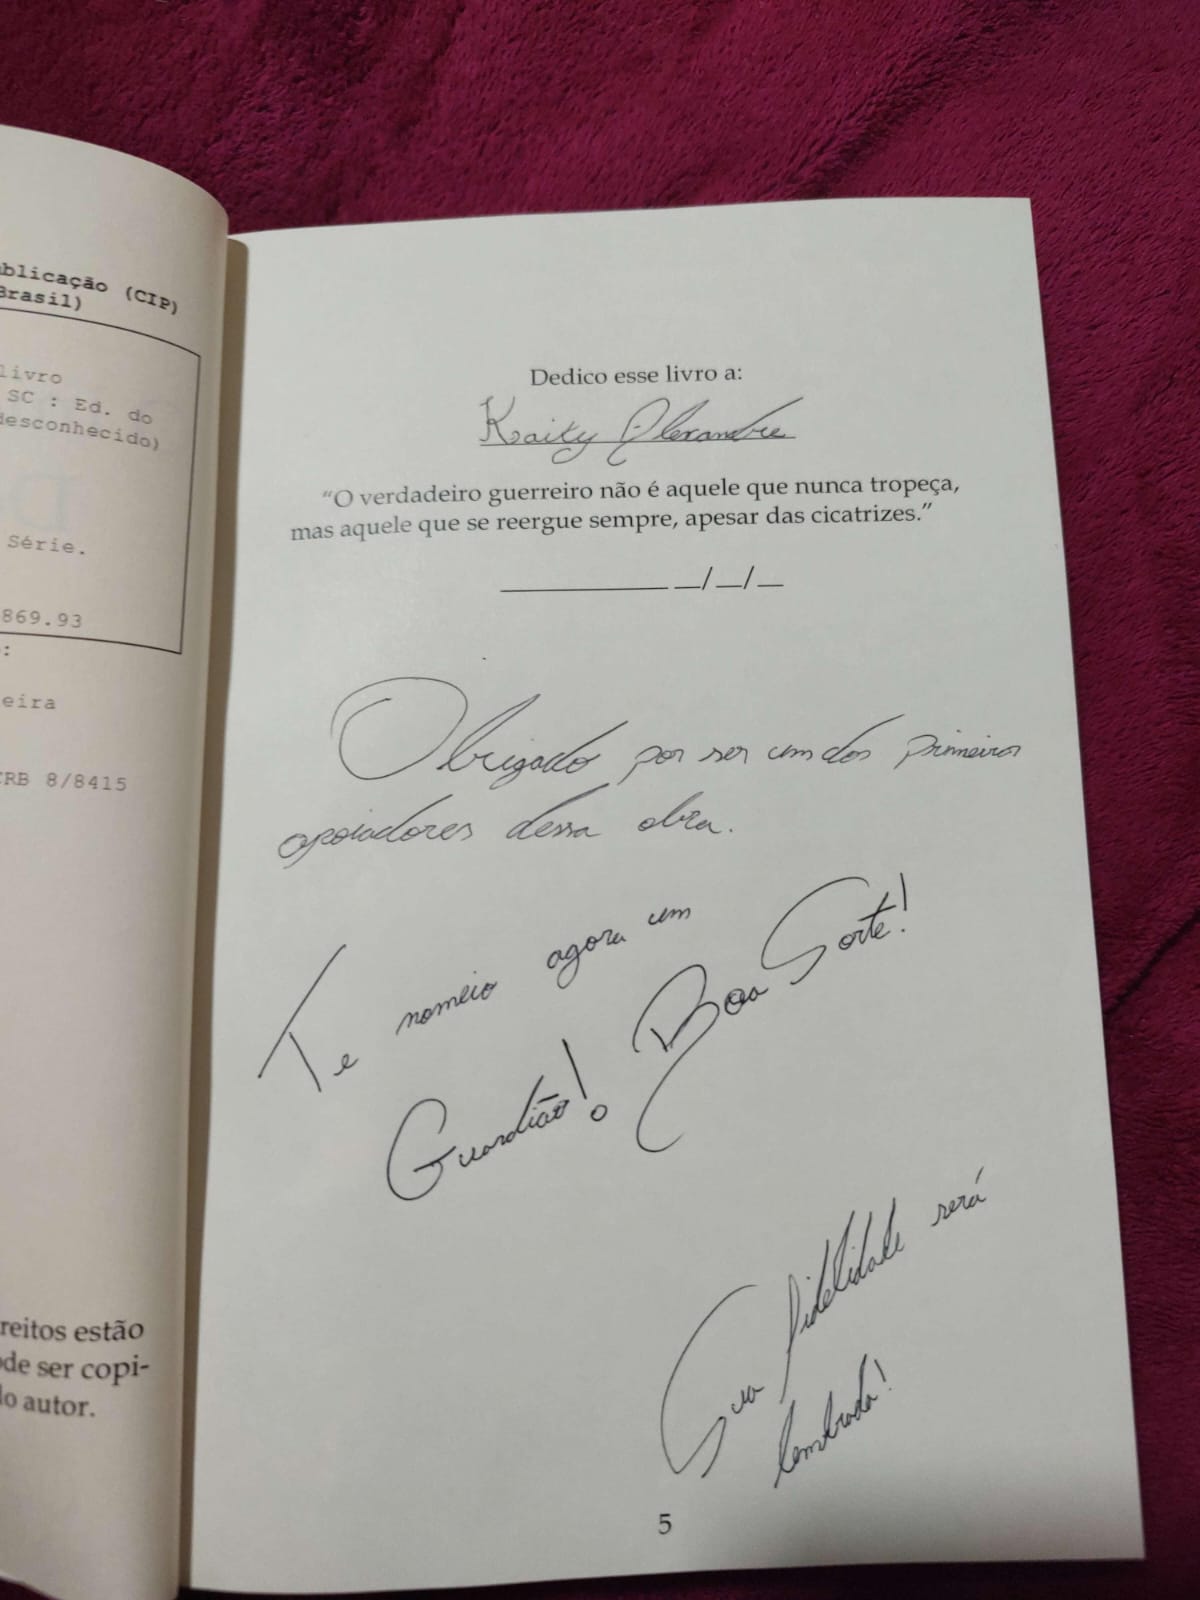 blicação (CIP)
Brasil)
livro
SC : Ed. do
desconhecido)
Série.
869.93
:
eira
CRB 8/8415
reitos estão
ode ser copi-
do autor.
Dedico esse livro a:
Kraity Alexandre
“O verdadeiro guerreiro não é aquele que nunca tropeça,
mas aquele que se reergue sempre, apesar das cicatrizes.”
____________ __/__/__
Obrigado por ser um dos primeiros
apoiadores dessa obra.
Te nomeio agora um
Guardião! Boa Sorte!
Sua fidelidade será
lembrada!
5